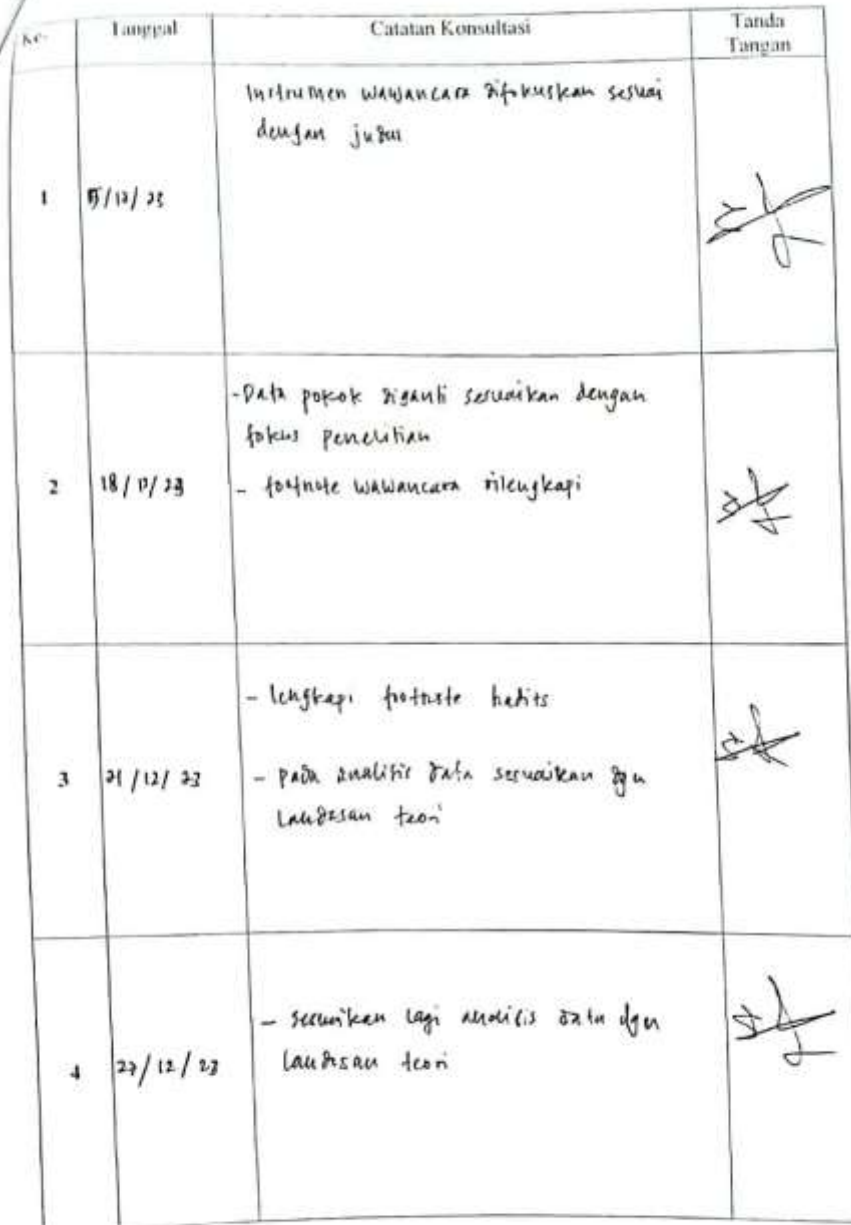 Ke- Tanggal Catatan Konsultasi Tanda
Tangan
Instrumen wawancara difokuskan sesuai
dengan judul
1 /12/23
- Data pokok diganti sesuaikan dengan
fokus penelitian
2 18/12/23 - footnote wawancara dilengkapi
- lengkapi footnote hadits
3 21/12/23 - pada analisis data sesuaikan dgn
landasan teori
- sesuaikan lagi analisis data dgn
4 27/12/23 landasan teori